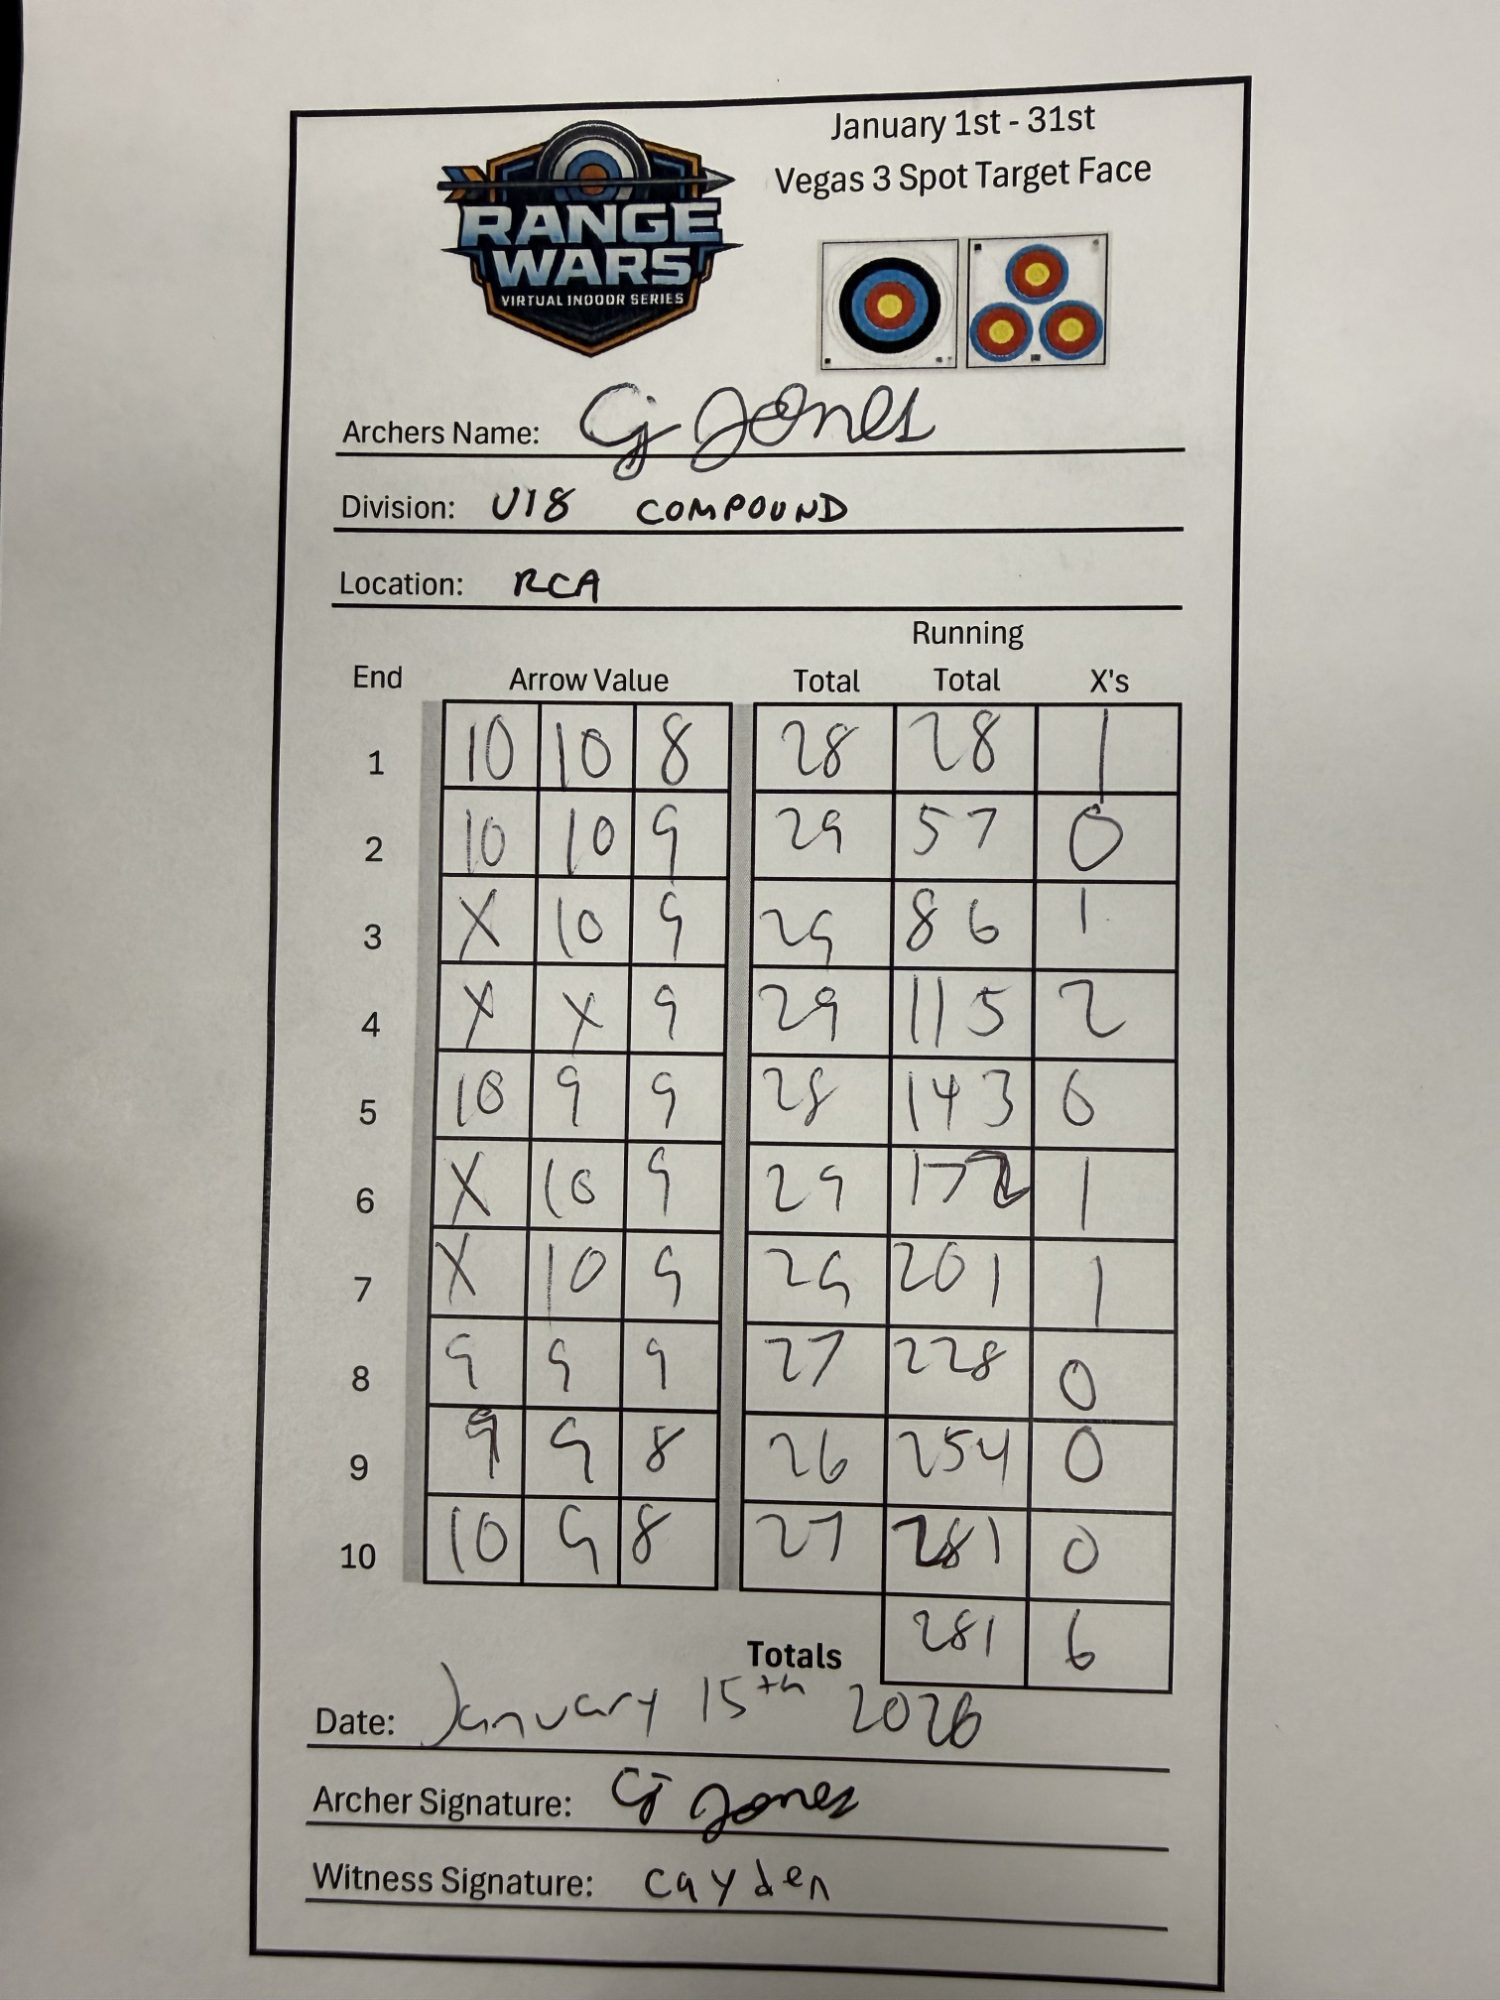 January 1st - 31st
Vegas 3 Spot Target Face
RANGE
WARS
VIRTUAL INDOOR SERIES
Archers Name: Cj Jones
Division: U18 COMPOUND
Location: RCA
Running
End Arrow Value Total Total X's
1 10 10 8 28 28 1
2 10 10 9 29 57 0
3 X 10 9 29 86 1
4 X X 9 29 115 2
5 10 9 9 28 143 0
6 X 10 9 29 172 1
7 X 10 9 29 201 1
8 9 9 9 27 228 0
9 9 9 8 26 254 0
10 10 9 8 27 281 0
Totals 281 6
Date: January 15th 2026
Archer Signature: Cj Jones
Witness Signature: Cayden